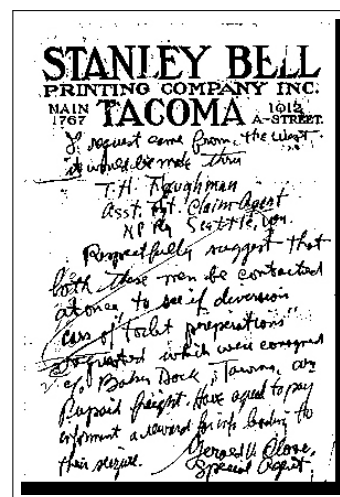 STANLEY BELL
PRINTING COMPANY INC.
MAIN 1767 TACOMA 1012 A-STREET.
If request came from the West
it would be made thru
T. H. Faughman
Asst. Frt. Claim Agent
NP Ry Seattle, Wn.
Respectfully suggest that
both these men be contacted
at once to see if diversion
cars of "toilet preparations"
requested which were consigned
c/o Baker Dock, Tacoma, are
Prepaid freight. Have agreed to pay
informant a reward for info leading to
their seizure.
Gerald
Special Agent